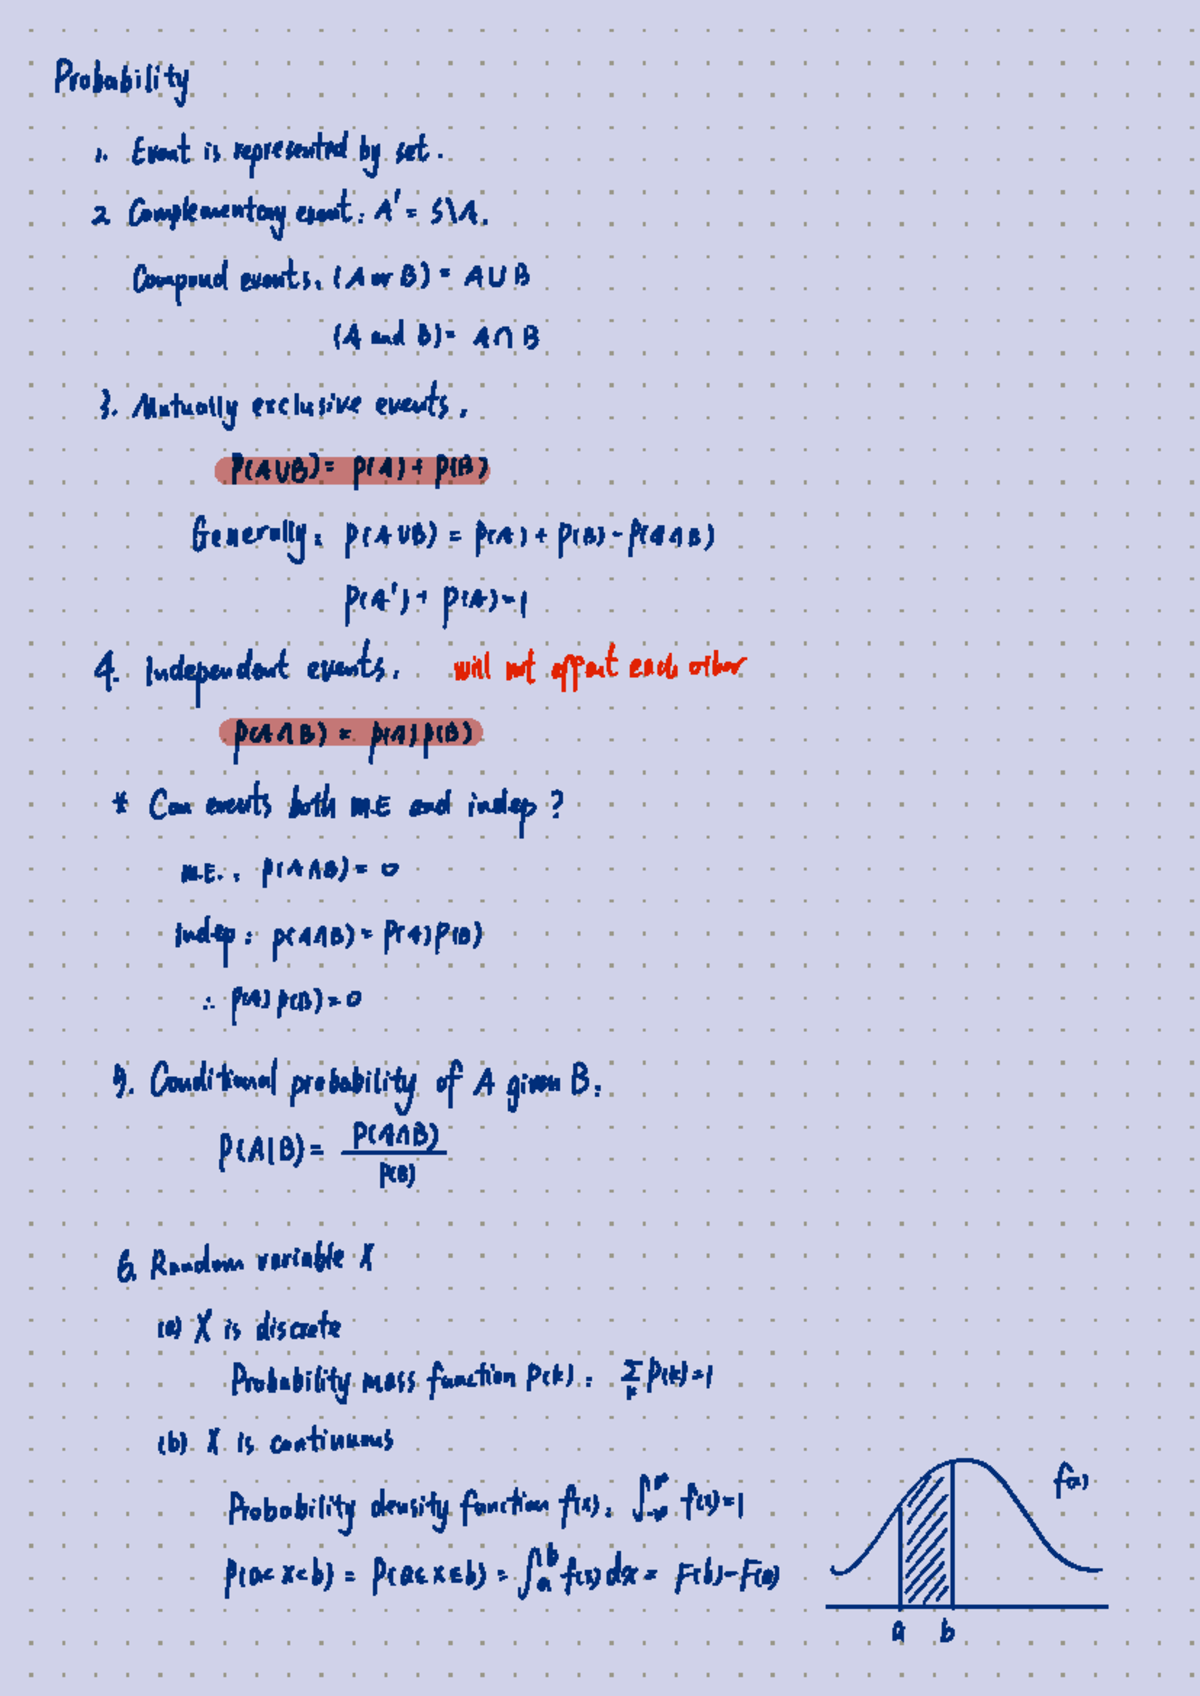 Probability
1. Event is represented by set.
2. Complementary event: A' = S\A.
Compound events: (A or B) = A∪B
(A and B) = A∩B
3. Mutually exclusive events.
P(A∪B) = P(A) + P(B)
Generally: P(A∪B) = P(A) + P(B) - P(A∩B)
P(A') + P(A) = 1
4. Independent events. will not affect each other
P(A∩B) = P(A)P(B)
* Can events both M.E and indep?
M.E.: P(A∩B) = 0
Indep: P(A∩B) = P(A)P(B)
∴ P(A)P(B) = 0
5. Conditional probability of A given B:
P(A|B) = P(A∩B)
P(B)
6. Random variable X
(a) X is discrete
Probability mass function P(k): Σ_k P(k) = 1
(b) X is continuous
Probability density function f(x): ∫_{-∞}^{∞} f(x) = 1
P(a<X<b) = P(a≤X≤b) = ∫_a^b f(x) dx = F(b) - F(a)
f(x)
a b